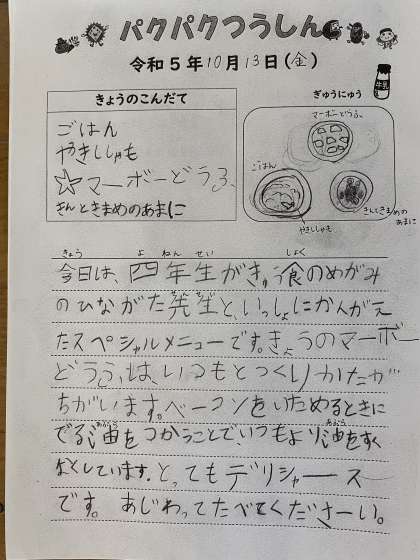 パクパクつうしん
令和5年10月13日(金)
きょうのこんだて
ごはん
やきししゃも
☆マーボーどうふ
きんときまめのあまに
ぎゅうにゅう
牛乳
マーボーどうふ
ごはん
やきししゃも
きんときまめの
あまに
きょう よ ねん せい しょく
今日は、四年生がきゅう食のめがみ
のひながた先生と、いっしょにかんがえ
たスペシャルメニューです。きょうのマーボー
どうふは、いつもとつくりかたが
ちがいます。ベーコンをいためるときに
でる油をつかうことでいつもより油をすく
なくしています。とってもデリシャース
です。あじわってたべてくださーい。